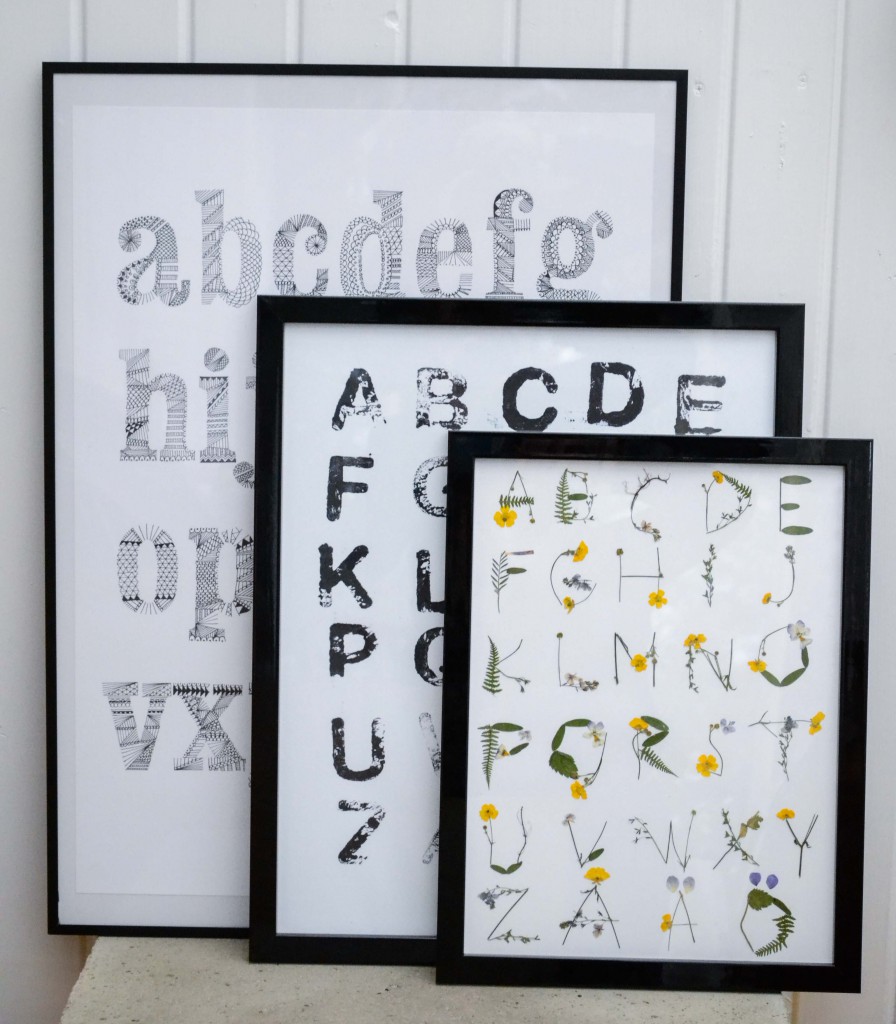 abcdefg
hij
op
vx
A B C D E
F G
K L
P Q
U
Z
A B C D E
F G H I J
K L M N O
P Q R S T
U V W X Y
Z Å Ä Ö